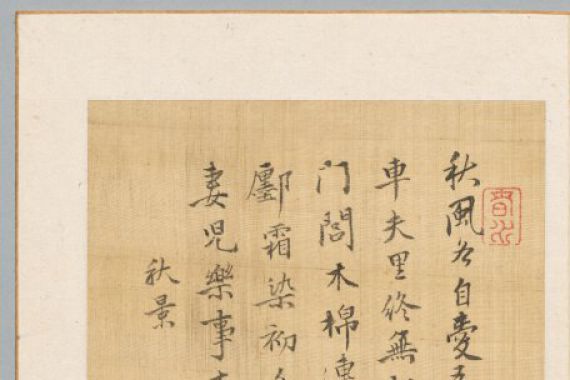 秋風各自愛
車夫里終無
門閭木棉
鄽霜染初
妻児樂事
秋景